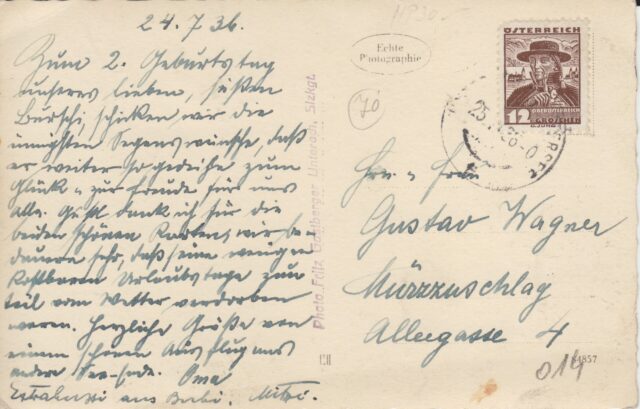 24.7.36.
Zum 2. Geburtstag
unseres lieben, süßen
Burschi, schicken wir die
innigsten Segenswünsche, daß
er weiter so gedeihe zum
Glück u. zur Freude für uns
alle. Gustl dank ich für die
beiden schönen Karten, wir be-
dauern sehr, daß seine wenigen
kostbaren Urlaubstage zum
teil vom Wetter verdorben
waren. Herzliche Grüße von
einem schönen Ausflug ans
andere See-Ende. Oma
aus Mitzi.
Photo Fritz Unterach, Slzkgt.
CH
Echte
Photographie
70
ÖSTERREICH
12
OBERÖSTERREICH
GROSCHEN
Hrn u. Frau
Gustav Wagner
Mürzzuschlag
Alleegasse 4
84857
014